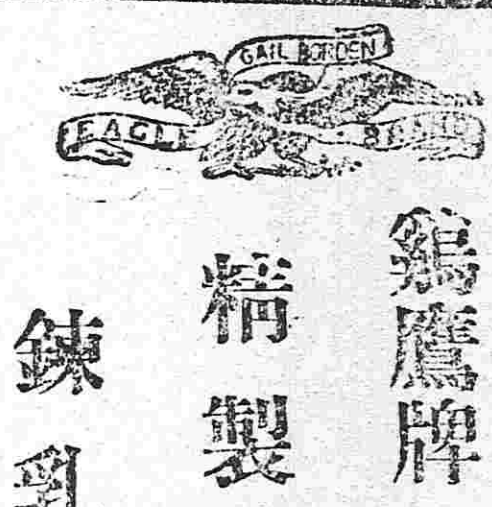 GAIL BORDEN
EAGLE BRAND
鷄鷹牌
精製
鍊乳